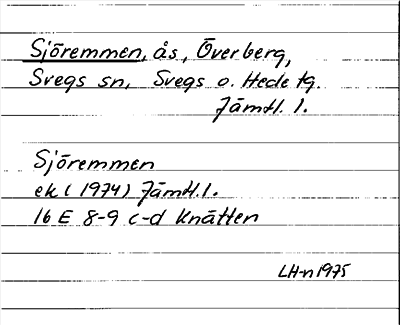 Sjöremmen, ås, Överberg,
Svegs sn, Svegs o. Hede tg.
Jämtl. l.
Sjöremmen
ek (1974) Jämtl. l.
16 E 8-9 c-d Knätten
LH-n 1975